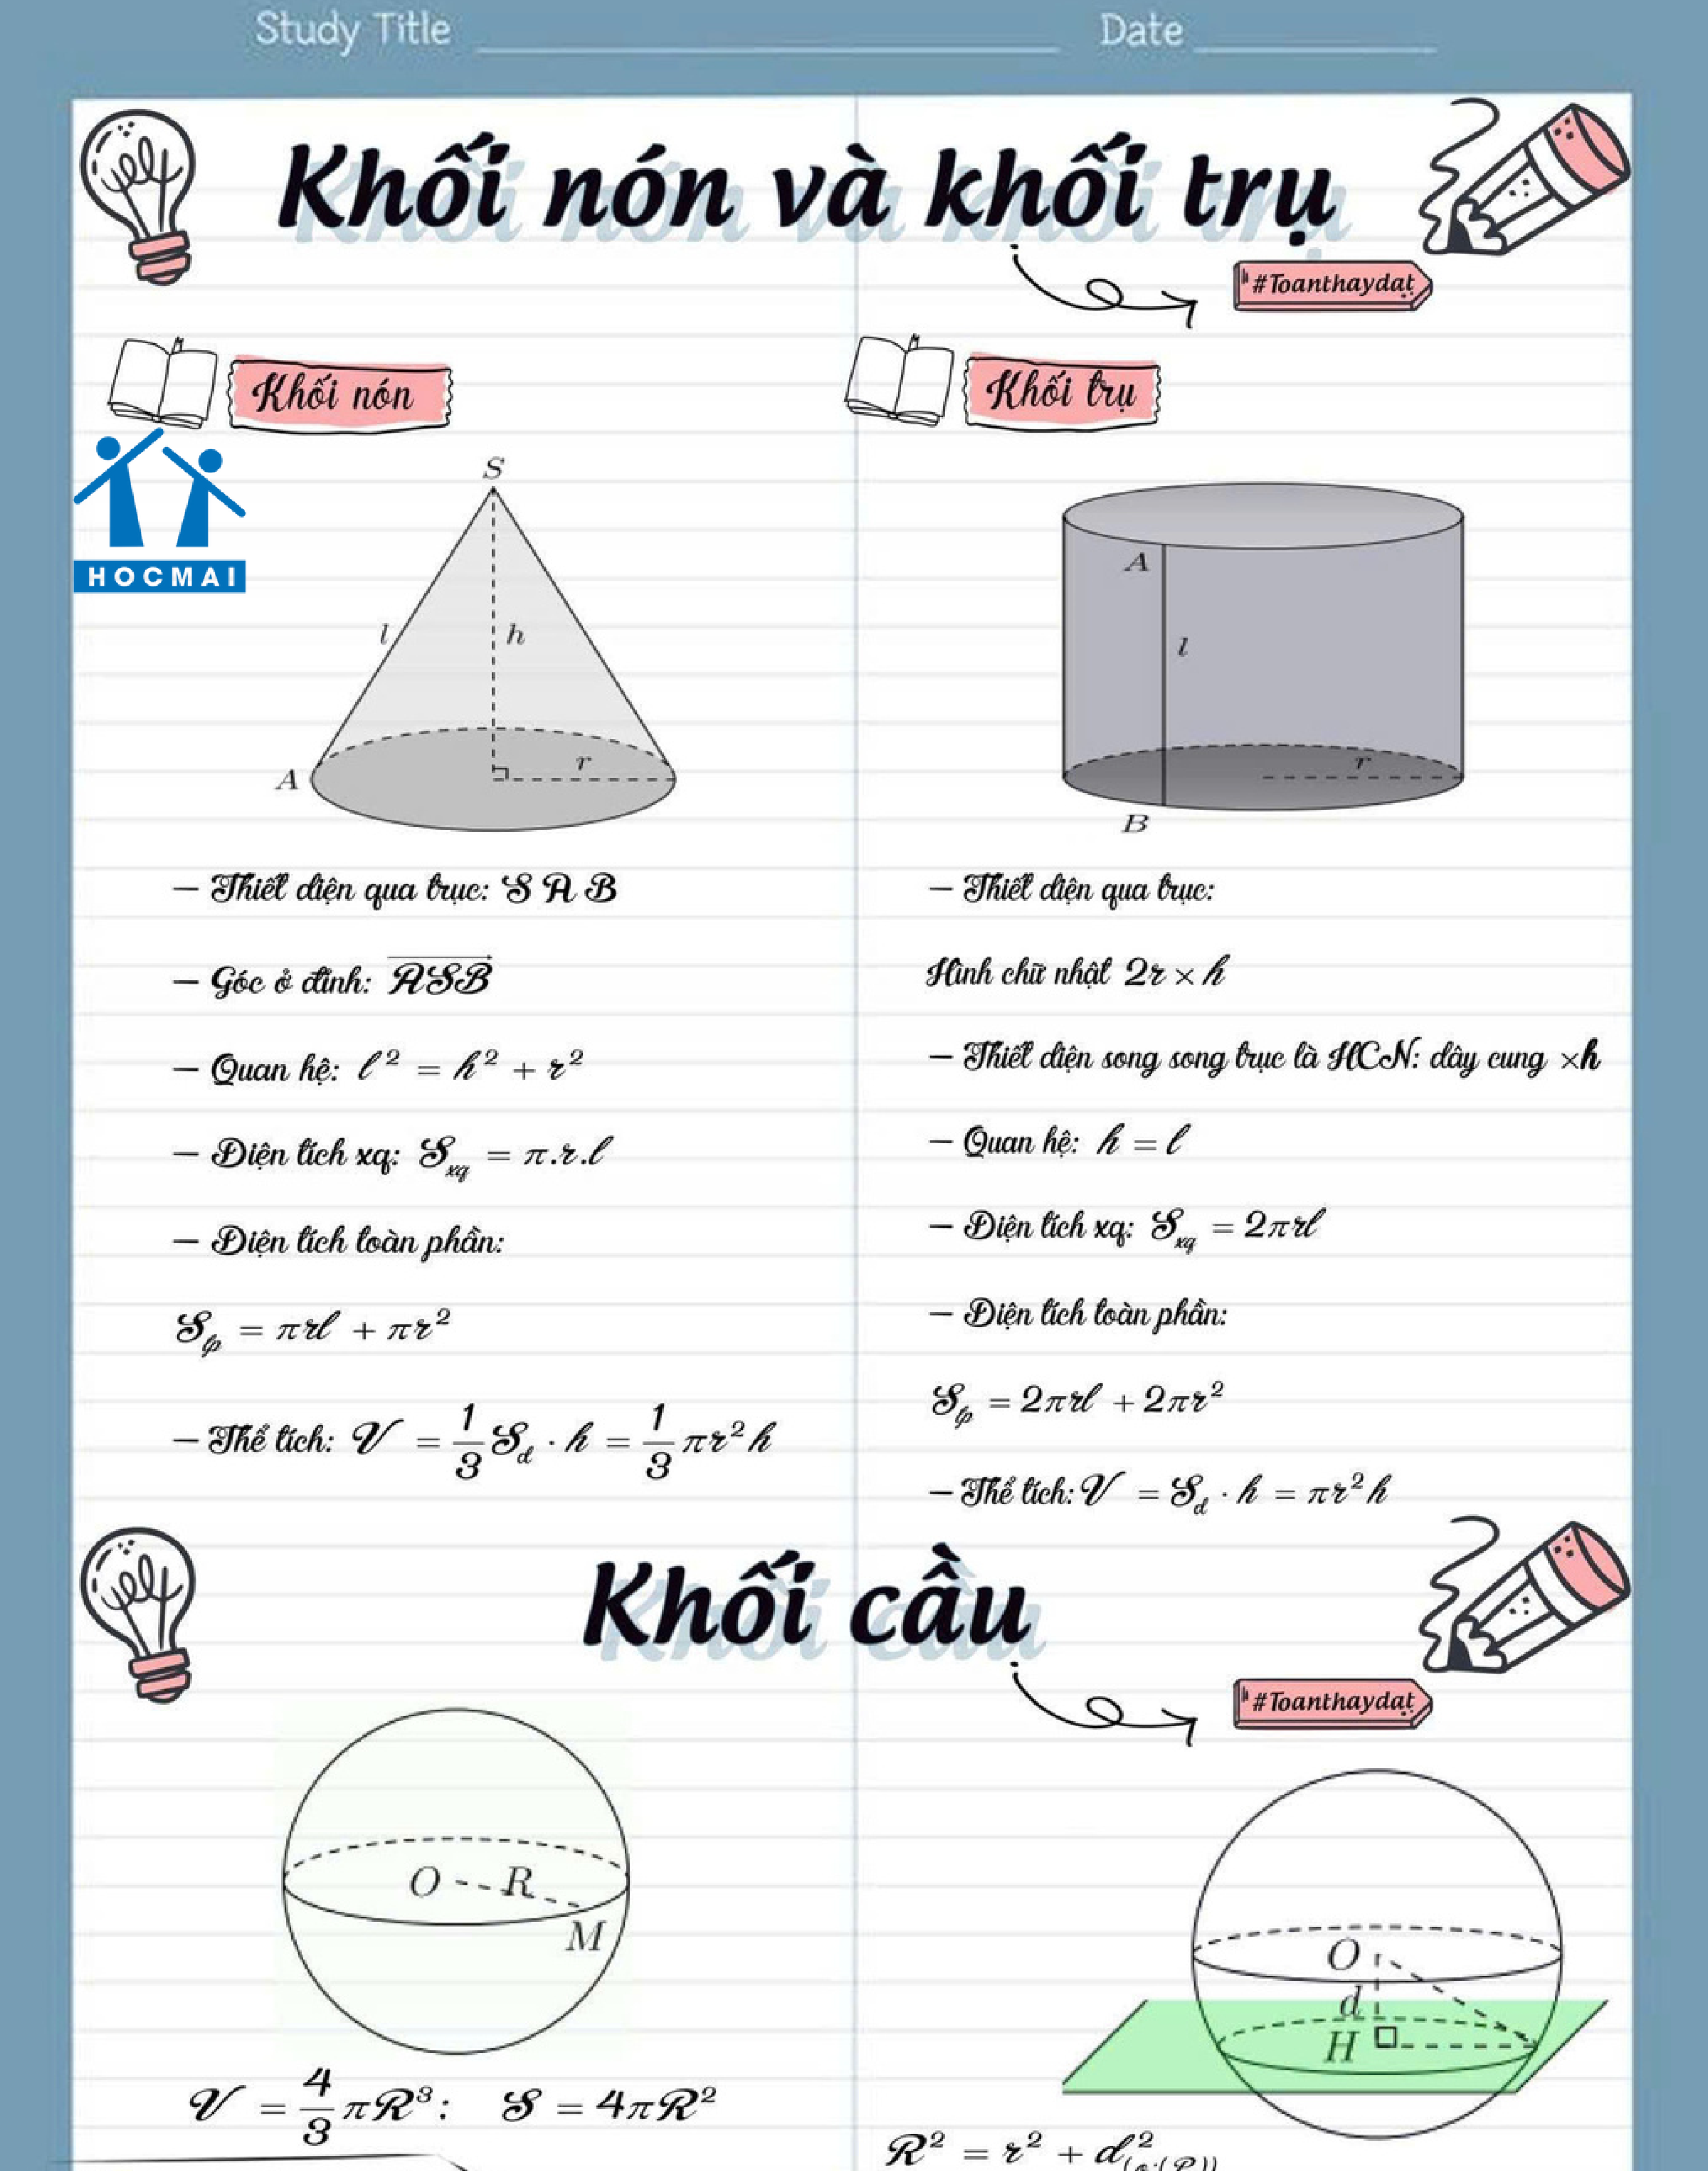 Study Title ____________ Date ______
Khối nón và khối trụ
#Toanthaydạt
Khối nón
HOCMAI
S
l
h
r
A
— Thiết diện qua trục: S A B
— Góc ở đỉnh: ASB
— Quan hệ: l² = h² + r²
— Diện tích xq: S_xq = π.r.l
— Diện tích toàn phần:
S_tp = πrl + πr²
— Thể tích: V = 1/3 S_d · h = 1/3 πr²h
Khối trụ
A
l
r
B
— Thiết diện qua trục:
Hình chữ nhật 2r × h
— Thiết diện song song trục là HCN: dây cung ×h
— Quan hệ: h = l
— Diện tích xq: S_xq = 2πrl
— Diện tích toàn phần:
S_tp = 2πrl + 2πr²
— Thể tích: V = S_d · h = πr²h
Khối cầu
#Toanthaydạt
O
R
M
V = 4/3 πR³: S = 4πR²
O
d
H
R² = r² + d²